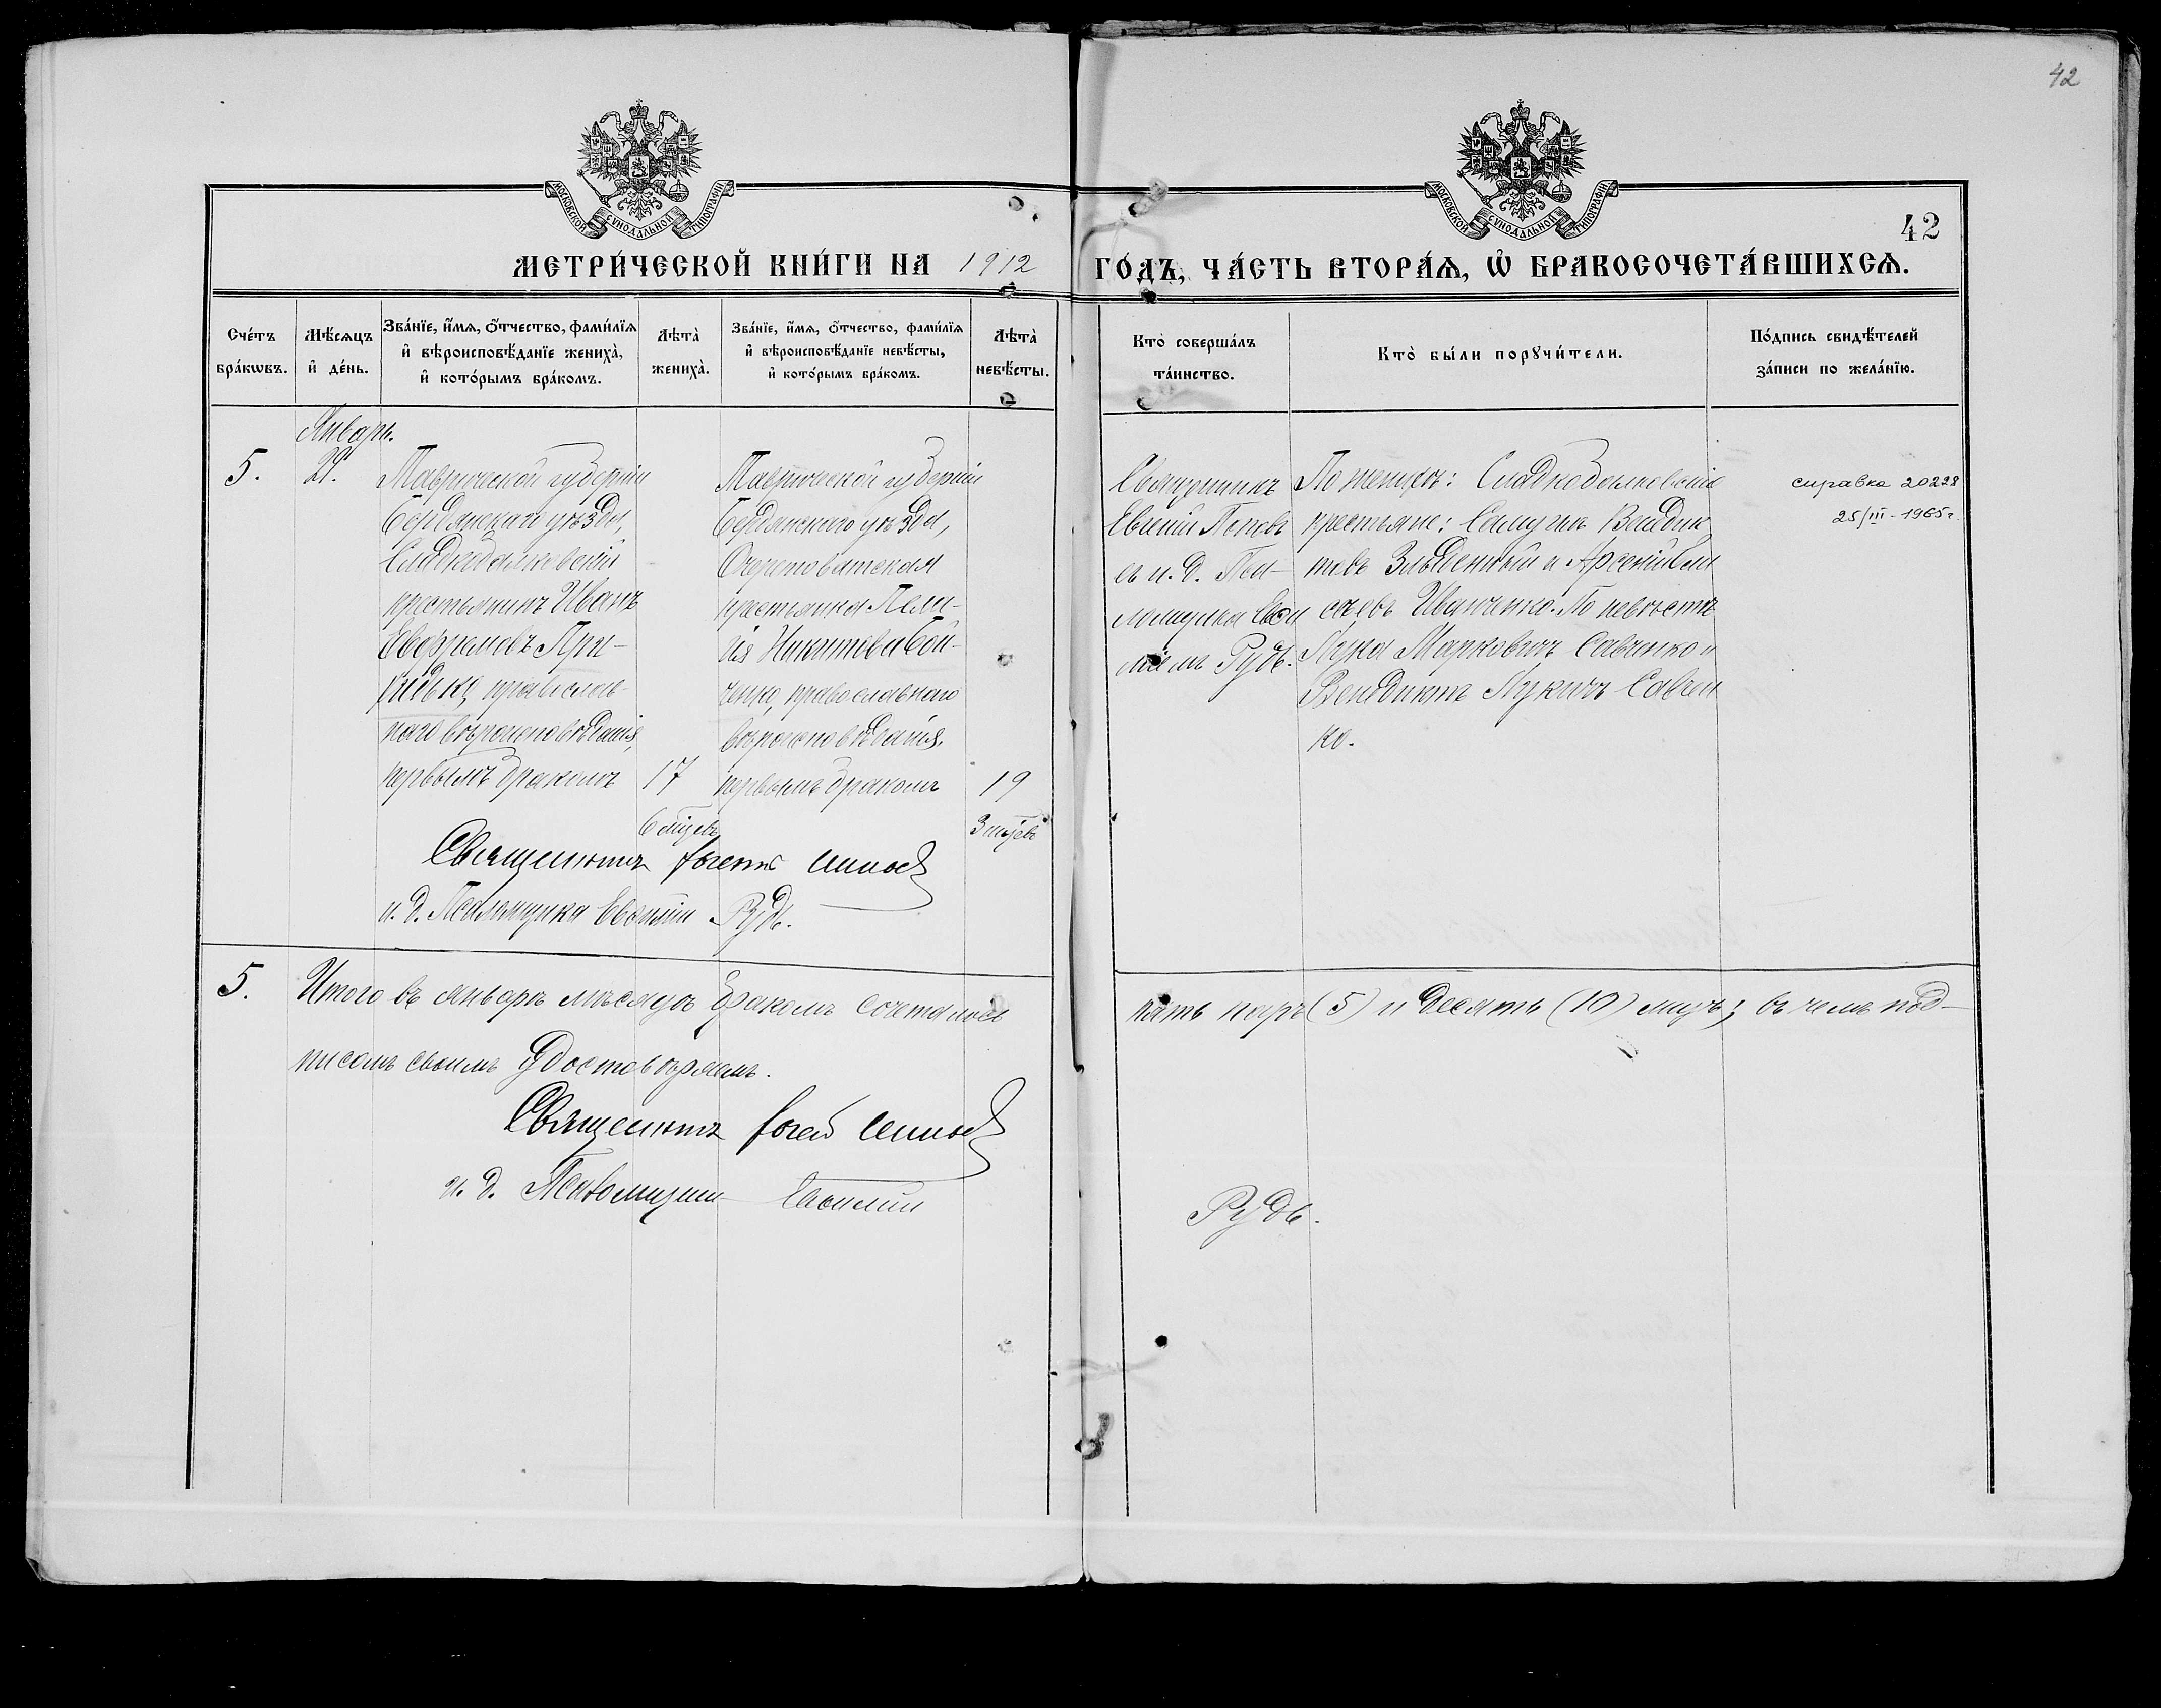 42
МОСКОВСКОЙ СѴНОДАЛЬНОЙ ТИПОГРАФІИ
МОСКОВСКОЙ СѴНОДАЛЬНОЙ ТИПОГРАФІИ
42
МЕТРИ́ЧЕСКОЙ КНИ́ГИ НА 1912 ГО́ДЪ, ЧА́СТЬ ВТОРА́Ѧ, Ѽ БРАКОСОЧЕТА́ВШИХСѦ.
Сче́тъ бра́кѡвъ.
Мѣ́сѧцъ и҆ де́нь.
Зва́нїе, и҆́мѧ, о҆́тчество, фами́лїѧ и҆ вѣроисповѣ́данїе жениха̀, и҆ кото́рымъ бра́комъ.
Лѣта̀ жениха̀.
Зва́нїе, и҆́мѧ, о҆́тчество, фами́лїѧ и҆ вѣроисповѣ́данїе невѣ́сты, и҆ кото́рымъ бра́комъ.
Лѣта̀ невѣ́сты.
Кто̀ соверша́лъ та́инство.
Кто̀ бы́ли порꙋчи́тели.
По́дпись свидѣ́телей за́писи по жела́нїю.
Январь.
5.
Таврической губерніи
Бердянскаго уѣзда,
Сладкобалковскій
крестьянинъ Иванъ
православ-
наго вѣроисповѣданія,
первымъ бракомъ
17
6 мцевъ
Таврической губерніи
Бердянскаго уѣзда,
Очеретоватская
крестьянка Пела-
гія Никитова Бой-
ченко, православнаго
вѣроисповѣданія,
первымъ бракомъ
19
3 мцевъ
Священникъ
Евгеній Поповъ
съ и. д. Пса-
ломщика Васи
ліемъ Рудь.
По женихѣ: Сладкобалковскіе
крестьяне:
и Арсеній
Иванченко. По невѣстѣ
Лука Марковичъ Савченко и
Венидиктъ Лукичъ Савчен
ко.
справка 20228
25/III-1965г.
Священникъ
и. д. Псаломщика Василій Рудь.
5.
Итого въ январѣ мѣсяцѣ бракомъ сочетались пять паръ (5) и десять (10) лицъ; въ чемъ под-
писомъ своимъ удостовѣряемъ.
Священникъ
и. д. Псаломщика Василій Рудь.